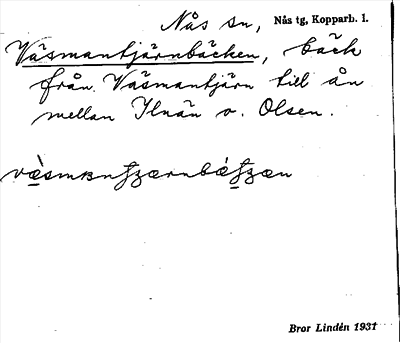 Nås sn, Nås tg, Kopparb. l.
Väsmantjärnbäcken, bäck
från Väsmantjärn till ån
mellan Ilnän o. Olsen.
Bror Lindén 1931